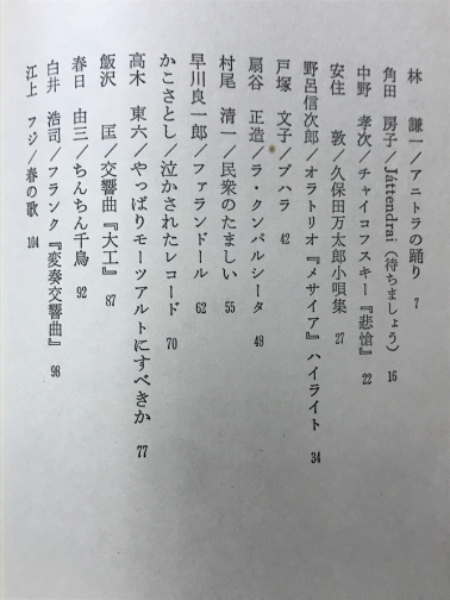 林 謙一/アニトラの踊り 7
角田 房子/Játtendrai(待ちましょう) 16
中野 孝次/チャイコフスキー『悲愴』 22
安住 敦/久保田万太郎小唄集 27
野呂信次郎/オラトリオ『メサイア』ハイライト 34
戸塚 文子/ブハラ 42
扇谷 正造/ラ・クンパルシータ 48
村尾 清一/民衆のたましい 55
早川良一郎/ファランドール 62
かこさとし/泣かされたレコード 70
高木 東六/やっぱりモーツアルトにすべきか 77
飯沢 匡/交響曲『大工』 87
春日 由三/ちんちん千鳥 92
白井 浩司/フランク『変奏交響曲』 98
江上 フジ/春の歌 104